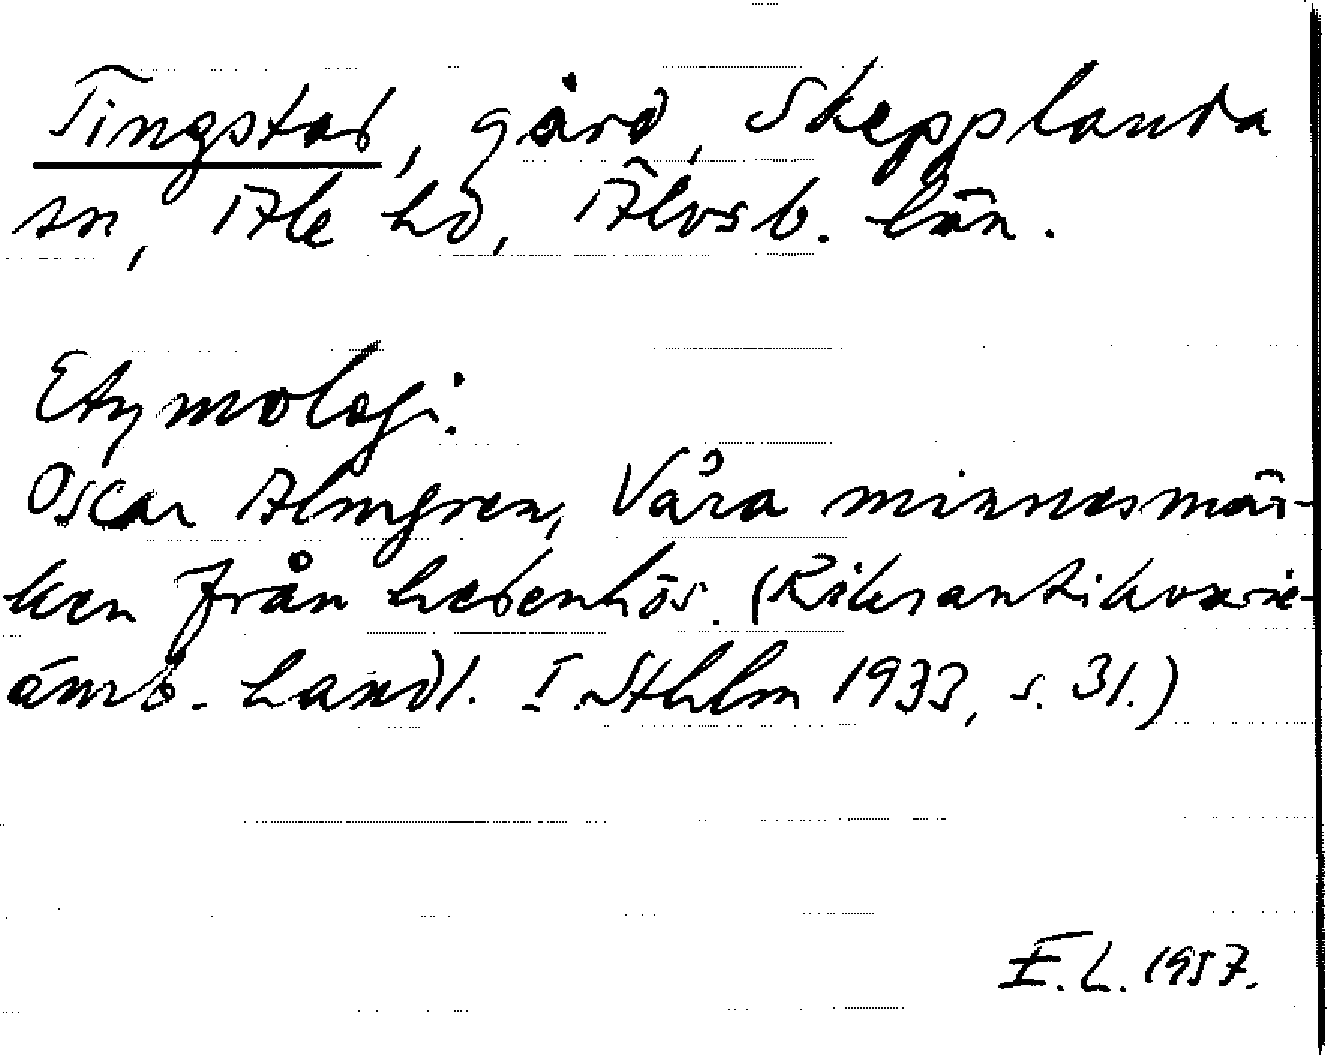 Tingstad, gård, Skepplanda
sn, Ale hd, Älvsb. län.
Etymologi:
Oscar Almgren, Våra minnesmär-
ken från hedenhös. (Riksantikvarie-
ämb. handl. I. Sthlm 1933, s. 31.)
E.L. 1957.